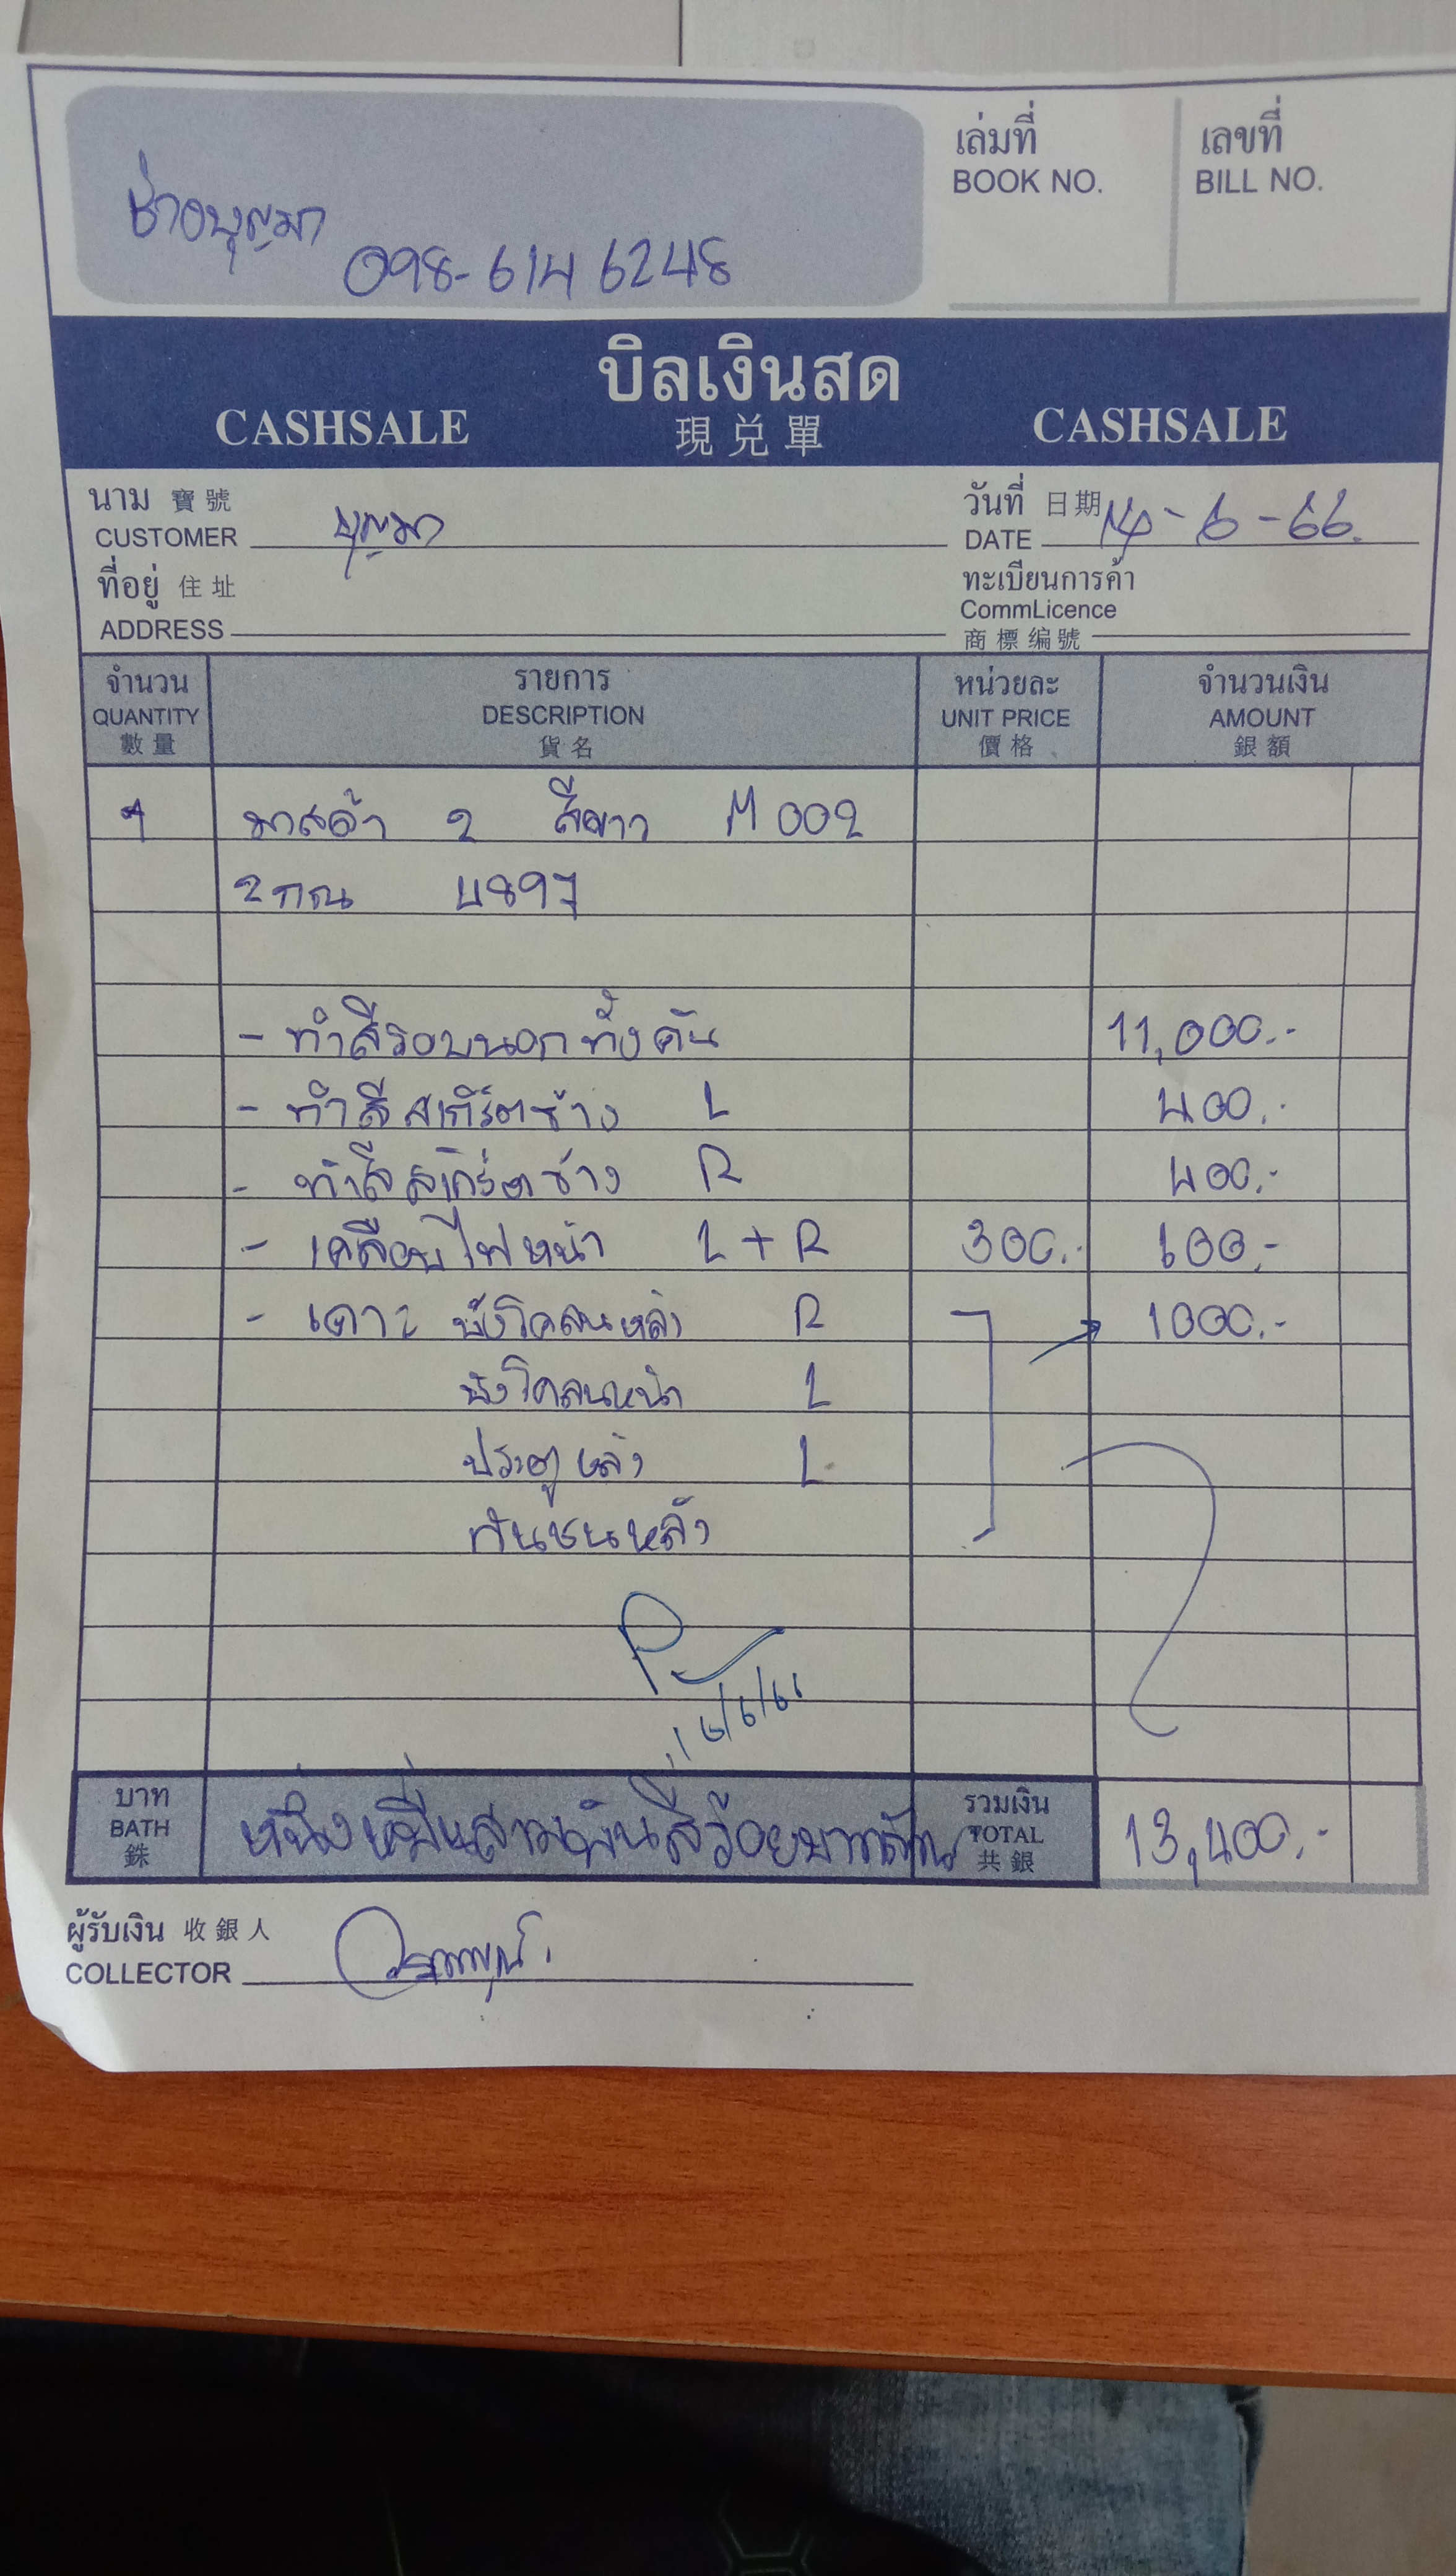 ช่างบุญมา
098-614 6248
เล่มที่
BOOK NO.
เลขที่
BILL NO.
บิลเงินสด
CASHSALE 現兌單 CASHSALE
นาม 寶號
CUSTOMER บุญมา
วันที่ 日期
DATE 14-6-66.
ที่อยู่ 住址
ADDRESS
ทะเบียนการค้า
CommLicence
商標编號
จำนวน รายการ หน่วยละ จำนวนเงิน
QUANTITY DESCRIPTION UNIT PRICE AMOUNT
數量 貨名 價格 銀額
1 มาสด้า 2 สีขาว M 002
2กณ 4897
- ทำสีรอบนอกทั้งคัน 11,000.-
- ทำสีสเกิร์ตข้าง L 400.-
- ทำสีสเกิร์ตข้าง R 400.-
- เคลือบไฟหน้า L + R 300.- 600.-
- เคาะ บังโคลนหลัง R 1000.-
บังโคลนหน้า L
ประตูหลัง L
กันชนหลัง
บาท หนึ่งหมื่นสามพันสี่ร้อยบาทถ้วน รวมเงิน 13,400.-
BATH TOTAL
銖 共銀
ผู้รับเงิน 收銀人
COLLECTOR